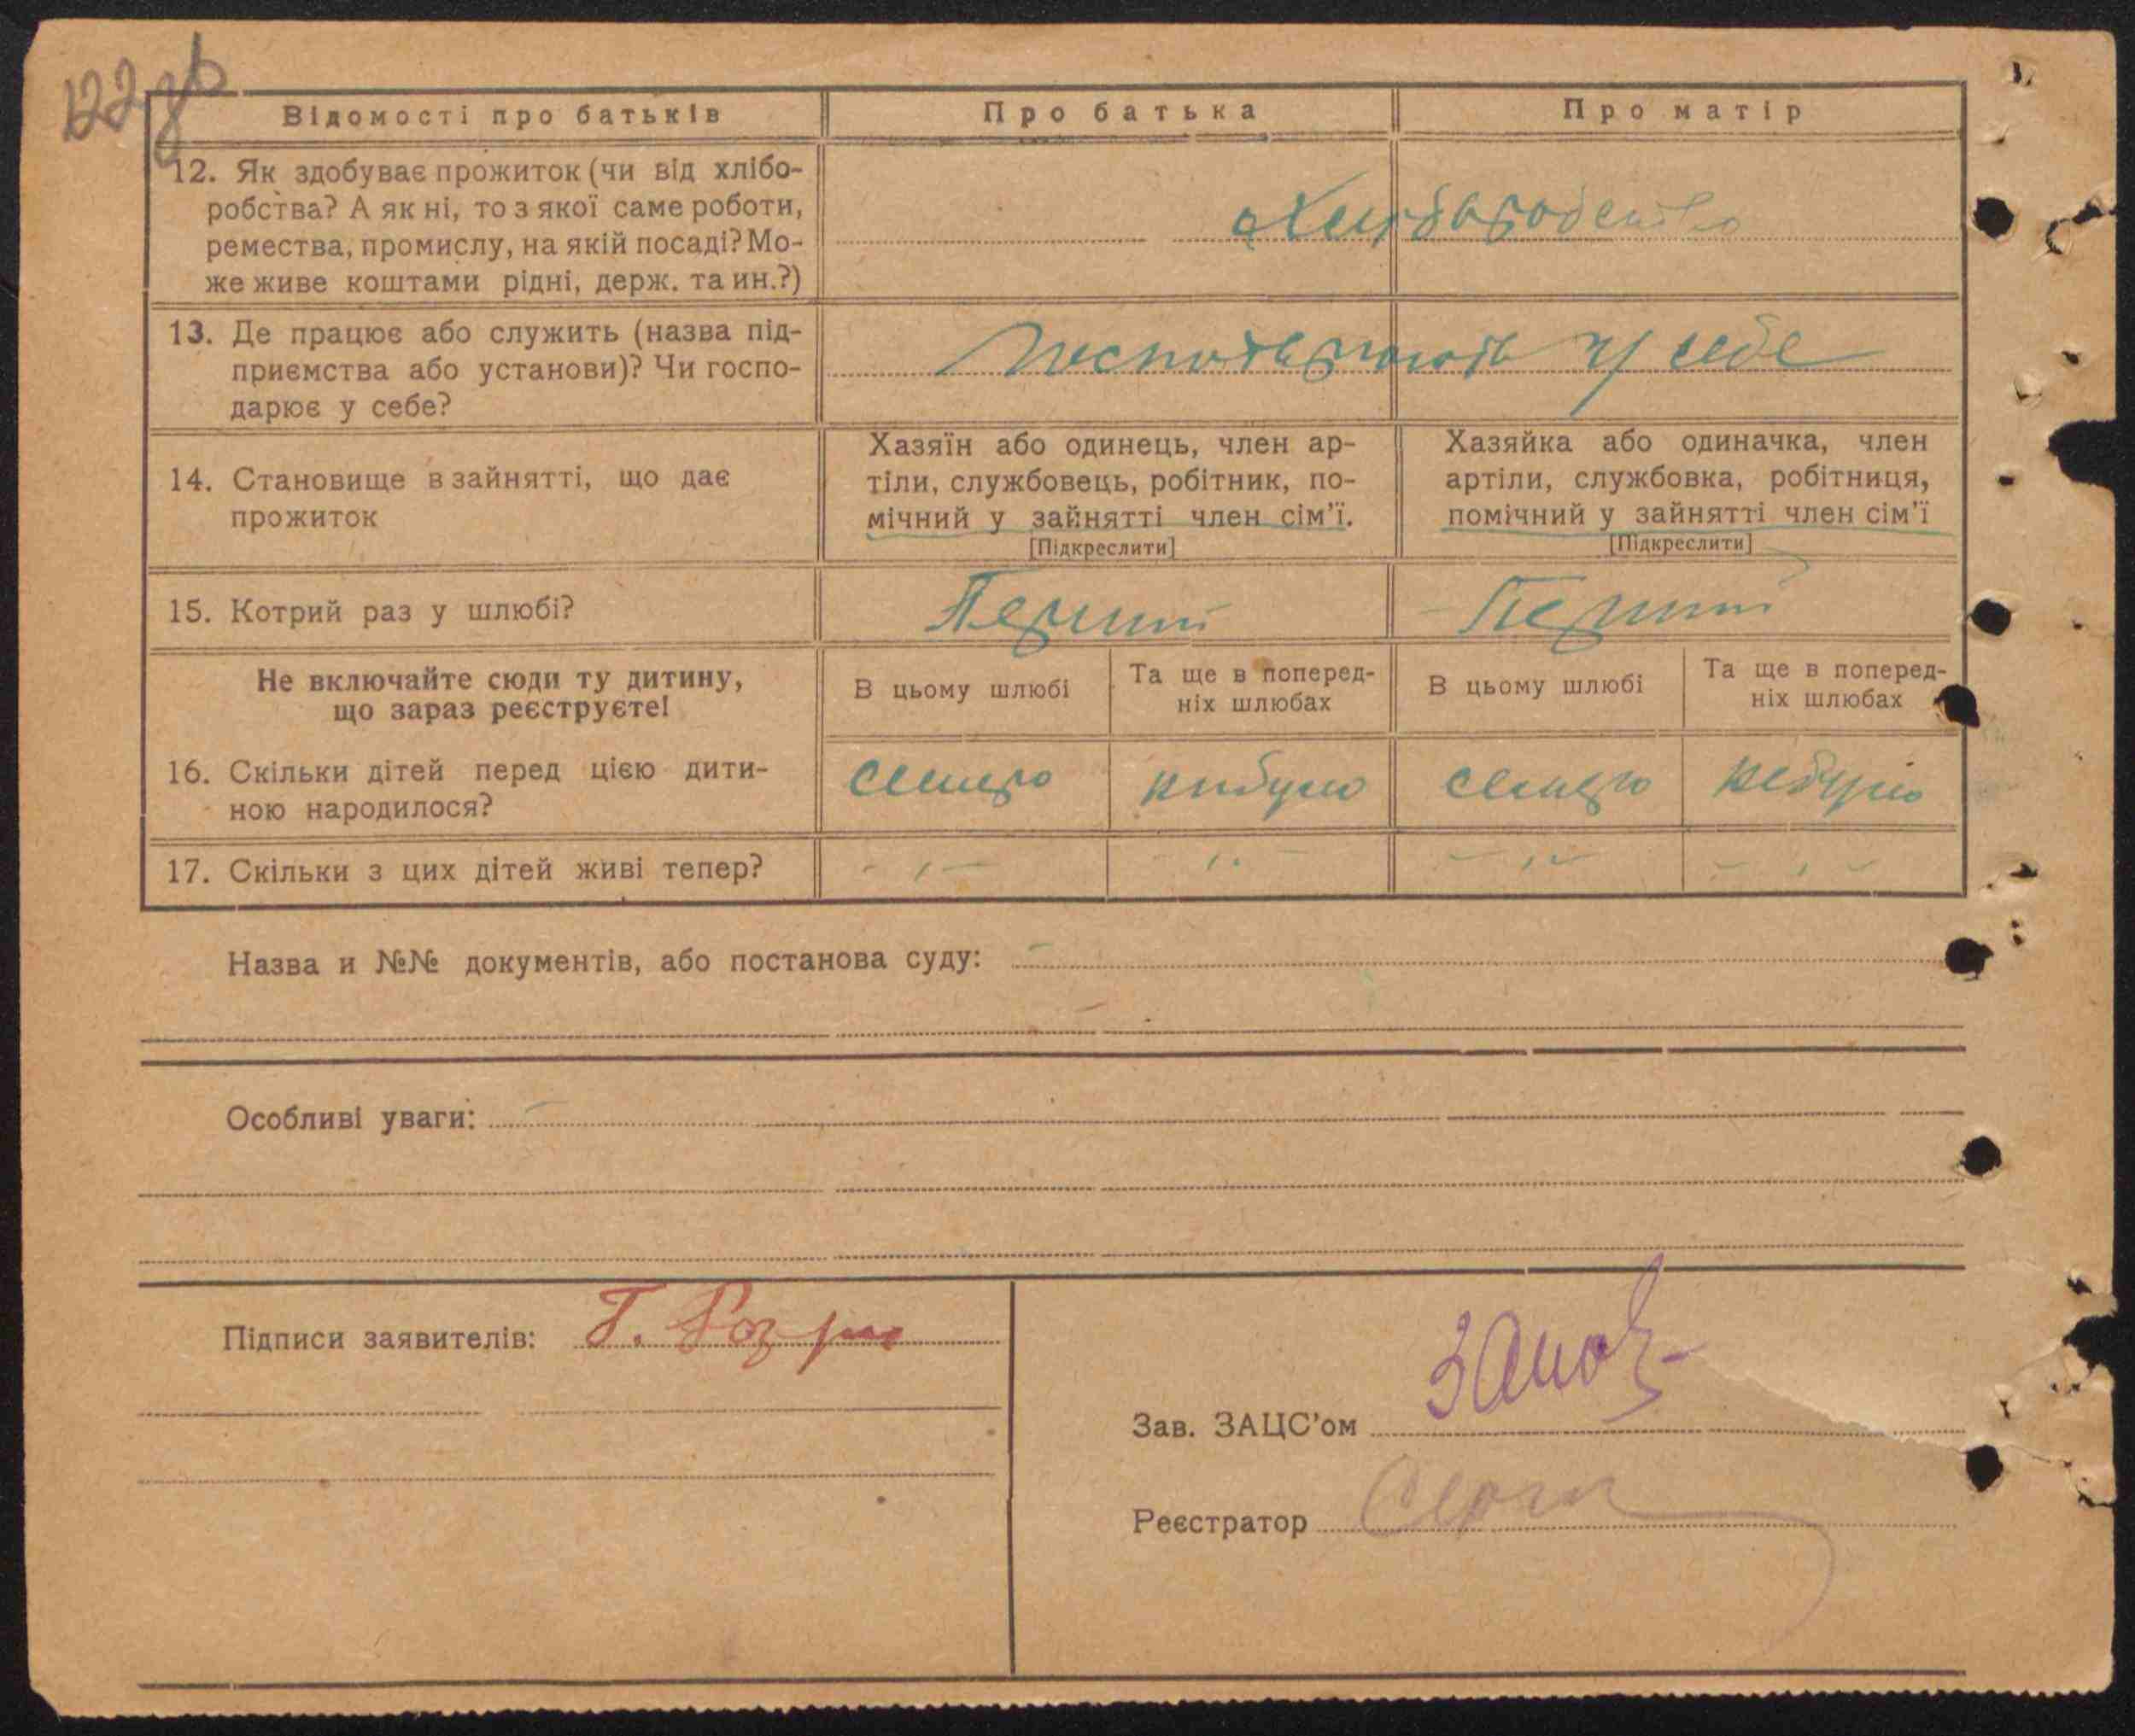 122 зв
Відомості про батьків
Про батька
Про матір
12. Як здобуває прожиток (чи від хлібо-
робства? А як ні, то з якої саме роботи,
ремества, промислу, на якій посаді? Мо-
же живе коштами рідні, держ. та ин.?)
13. Де працює або служить (назва під-
приємства або установи)? Чи госпо-
дарює у себе?
у себе
14. Становище в зайнятті, що дає
прожиток
Хазяїн або одинець, член ар-
тіли, службовець, робітник, по-
мічний у зайнятті член сім'ї.
[Підкреслити]
Хазяйка або одиначка, член
артіли, службовка, робітниця,
помічний у зайнятті член сім'ї
[Підкреслити]
15. Котрий раз у шлюбі?
Перший
Перший
Не включайте сюди ту дитину,
що зараз реєструєте!
В цьому шлюбі
Та ще в поперед-
ніх шлюбах
В цьому шлюбі
Та ще в поперед-
ніх шлюбах
16. Скільки дітей перед цією дити-
ною народилося?
семеро
небуло
семеро
небуло
17. Скільки з цих дітей живі тепер?
Назва и №№ документів, або постанова суду:
Особливі уваги:
Підписи заявителів:
Зав. ЗАЦС'ом
Реєстратор